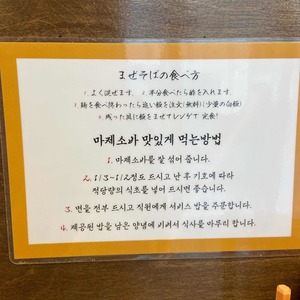 まぜそばの食べ方
1.よく混ぜます。 2.半分食べたら酢を入れます。
3.麺を食べ終わったら追い飯を注文(無料)(少量の白飯)
4.残った具に飯をまぜてレンゲで 完食!
마제소바 맛있게 먹는방법
1. 마제소바를 잘 섞어 줍니다.
2. 1/3~1/2정도 드시고 난 후 기호에 따라
적당량의 식초를 넣어 드시면 좋습니다.
3. 면을 전부 드시고 직원에게 서비스 밥을 주문합니다.
4. 제공된 밥을 남은 양념에 비벼서 식사를 마무리 합니다.